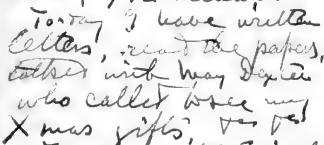 Today I have written
letters, read the papers,
talked with May Dexter
who called to see my
Xmas gifts,